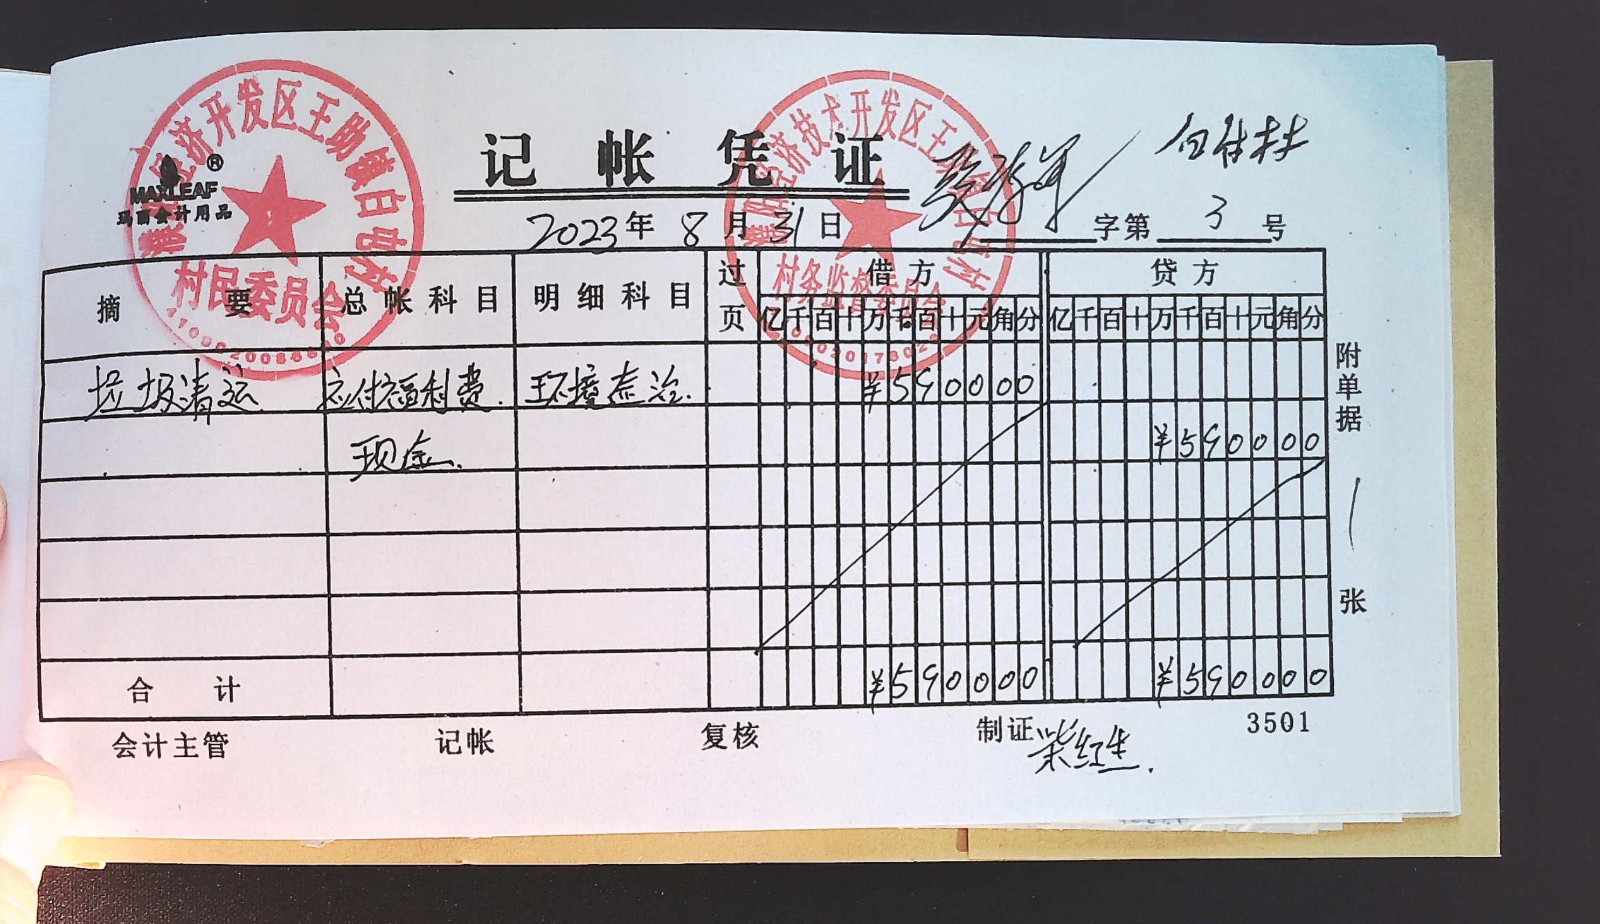 济开发区王助镇白屯村
村民委员会
MAXLEAF®
玛丽会计用品
记帐凭证
经济技术开发区王助镇白屯村
村务监督委员会
2023年8月31日
字第3号
摘要 总帐科目 明细科目 过页 借方 贷方
亿千百十万千百十元角分 亿千百十万千百十元角分
垃圾清运 应付福利费 环境 治 ¥590000
现金 ¥590000
合计 ¥590000 ¥590000
附单据 1 张
会计主管 记帐 复核 制证 柴红生 3501